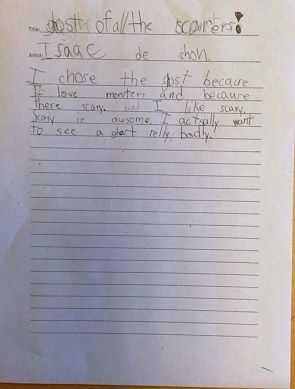 Title: gost of all the scarers!
Artist: Isaac de shon.
I chose the gost becare
I love monsters and because
there scary. and I like scary,
scary is awsome. I actsally want
to see a ghost relly badly.